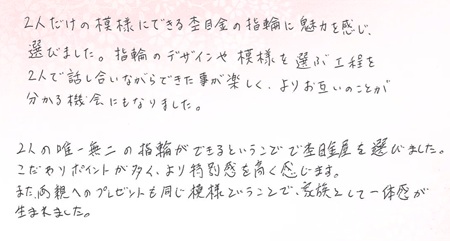 2人だけの模様にできる杢目金の指輪に魅力を感じ、
選びました。指輪のデザインや模様を選ぶ工程を
2人で話し合いながらできた事が楽しく、よりお互いのことが
分かる機会にもなりました。
2人の唯一無二の指輪ができるということで杢目金屋を選びました。
こだわりポイントが多く、より特別感を高く感じます。
また、両親へのプレゼントも同じ模様ということで、家族として一体感が
生まれました。